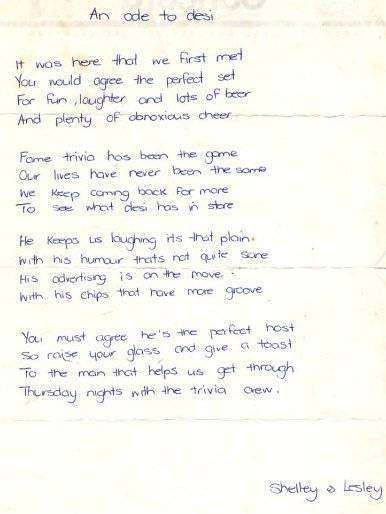 An ode to desi
It was here that we first met
You would agree the perfect set
For fun, laughter and lots of beer
And plenty of obnoxious cheer
Fame trivia has been the game
Our lives have never been the same
We keep coming back for more
To see what desi has in store
He keeps us laughing its that plain.
With his humour thats not quite sane
His advertising is on the move.
With his chips that have more groove
You must agree he's the perfect host
So raise your glass and give a toast
To the man that helps us get through
Thursday nights with the trivia crew.
Shelley & Lesley